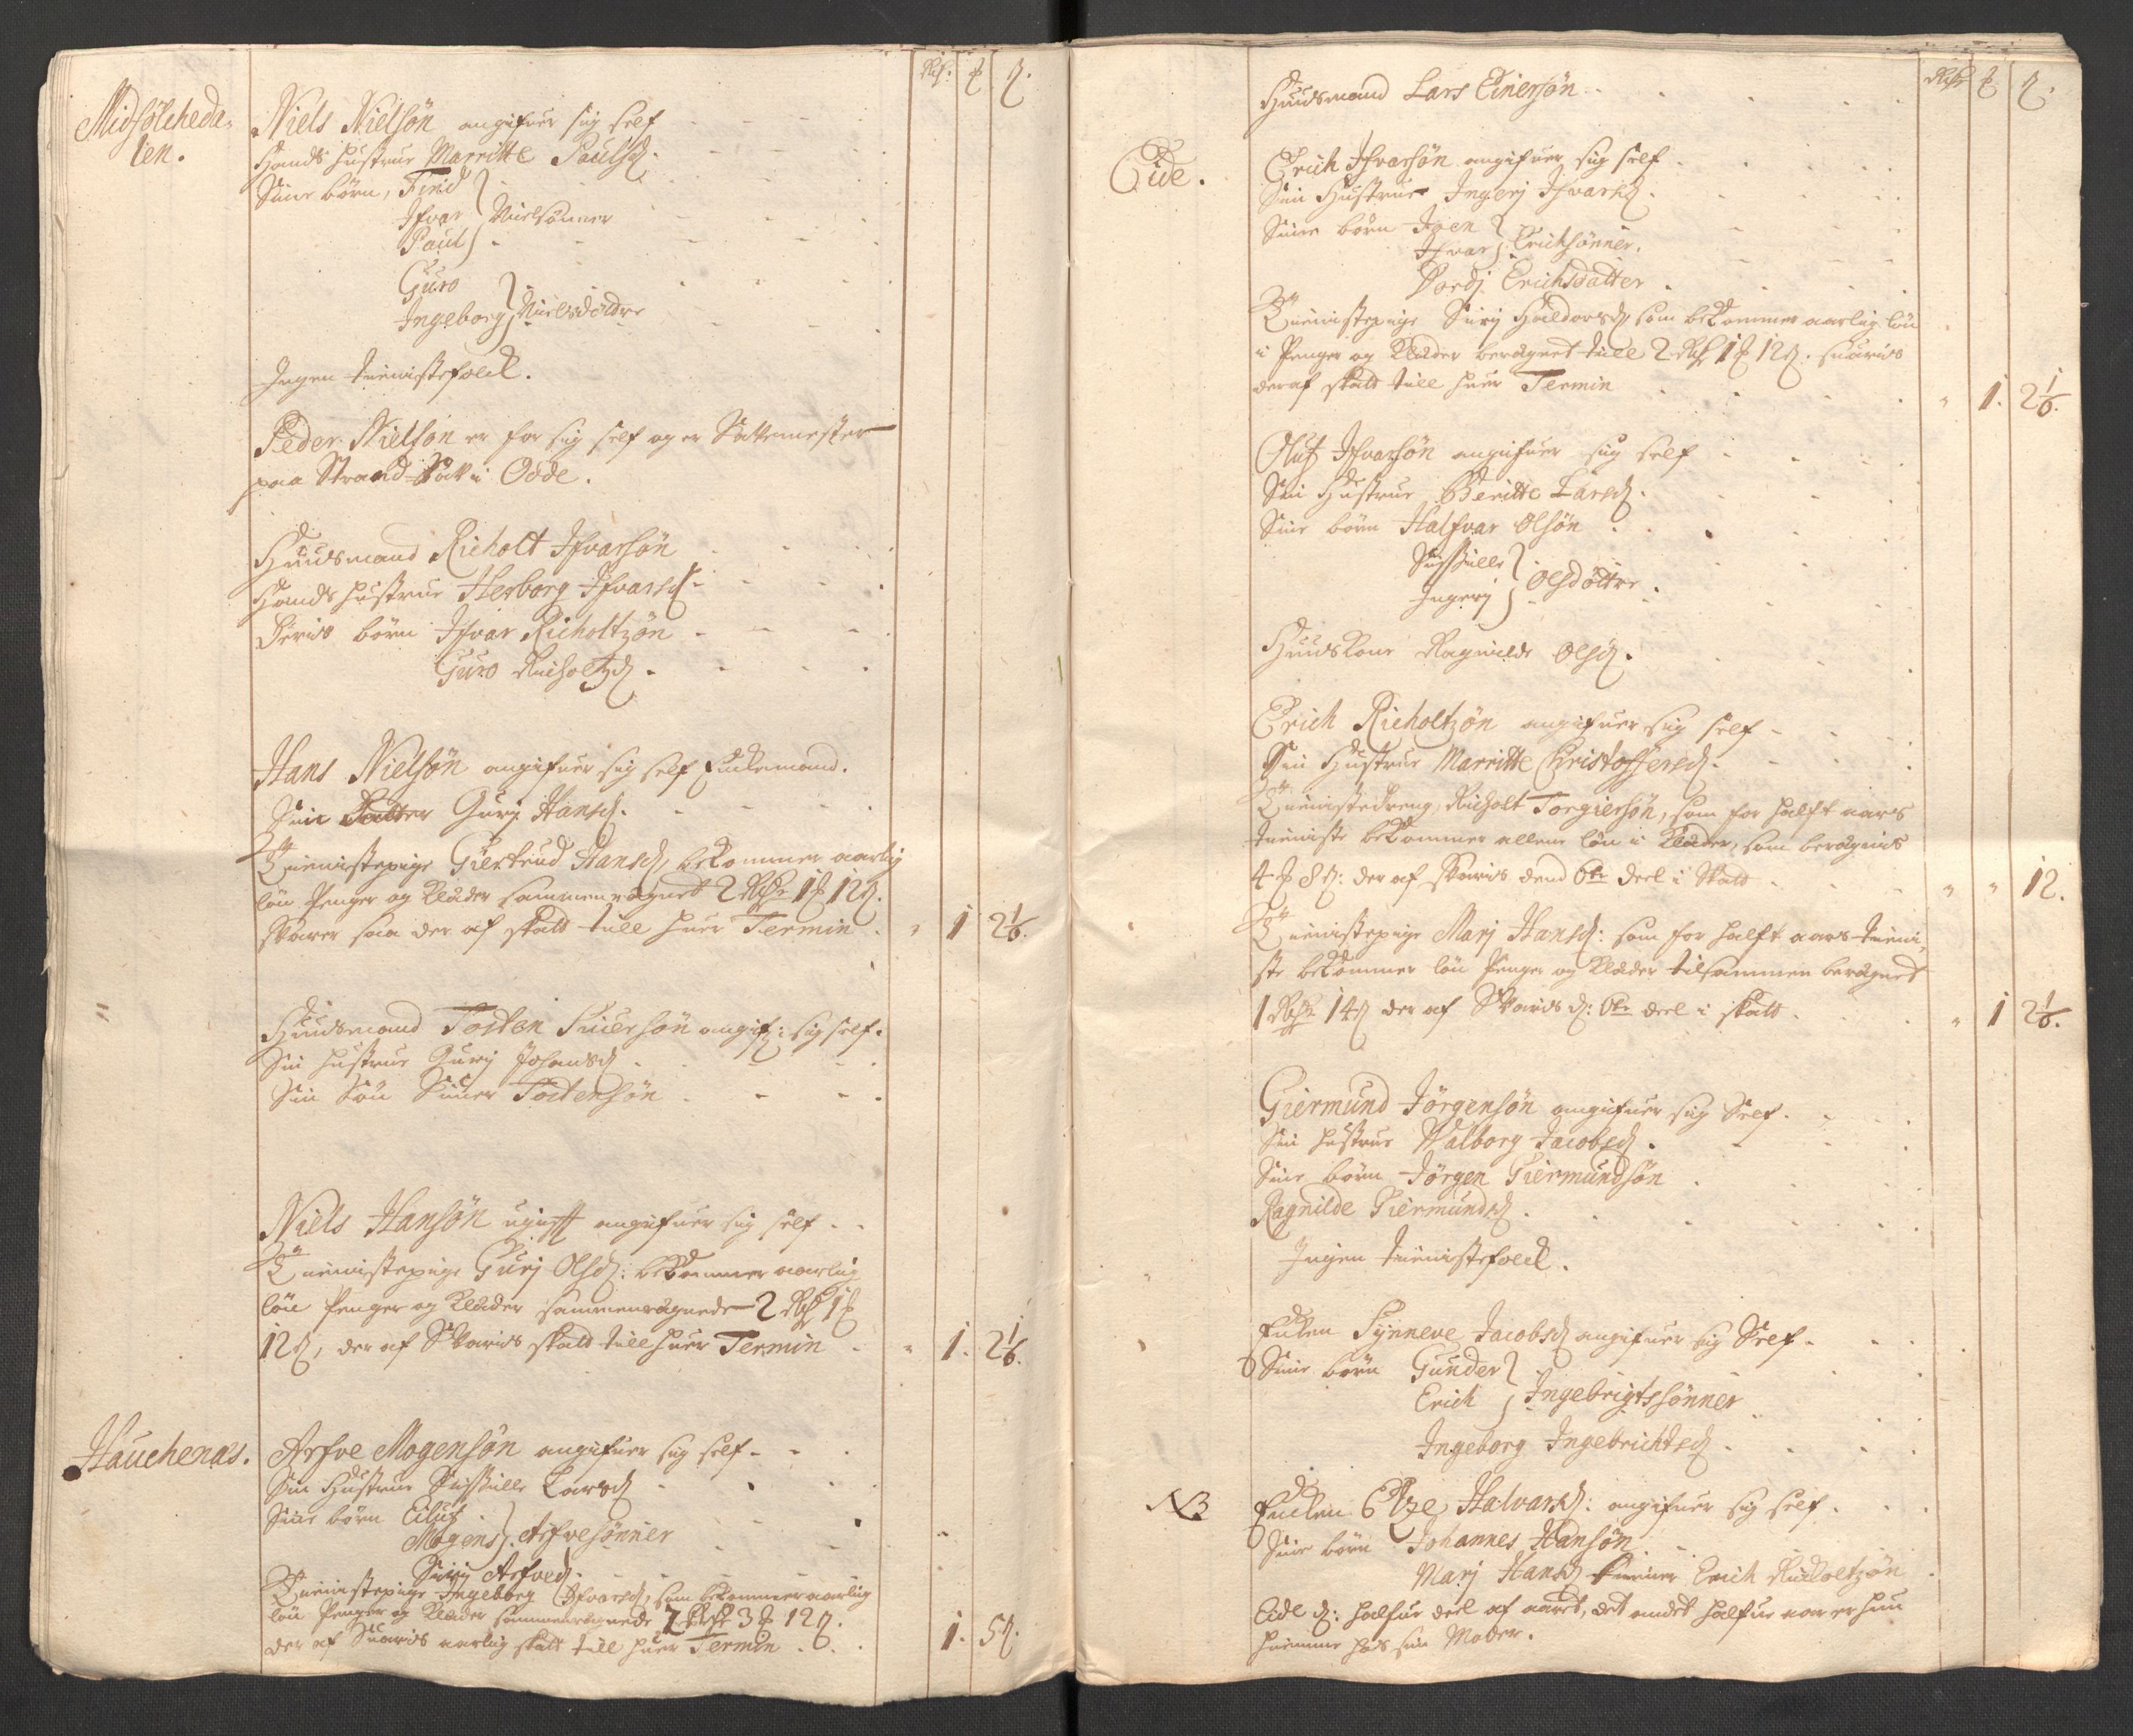 Rdr. ₰ ß.
Midsølcheda-
len.
Niels Nielsøn angifuer sig self
Hands hustrue Marritte Paulsd.
Sine børn, Find
Ifvar Nielsønner
Paul
Guro
Ingeborg Nielsdøttre
Ingen tienistefolck.
Peder Nielsøn er for sig self og er
paa Strand i Odde.
Huusmand Richolt Ifvarsøn
Hands hustrue Herborg Ifvarsd.
Deris børn Ifvar Richoltzøn
Guro Richoltzd.
Hans Nielsøn angifuer sig self Enkemand.
Sin Datter Gurj Hansd.
Tienistepige Giertrud Hansd, bekommer aarlig
løn Penger og Klæder sammenregnet 2 Rdr 1 12 ß.
svarer saa der af skatt till huer Termin 1 2 1/6.
Huusmand Tosten Siuersøn angif: sig self.
Sin hustrue Gurj Johansd
Sin Søn Siuer Tostensøn
Niels Hansøn ugift angifuer sig self
Tienistepige Gurj Olsd: bekommer aarlig
løn Penger og Klæder sammenregnede 2 Rdr 1
12 ß, der af Svaris skatt till huer Termin 1. 2 1/6.
Hauchenæs.
Arfve Mogensøn angifuer sig self
Sin Hustrue Sissille Larsd
Sine børn Eiluf
Mogens Arfvesønner
Siri Arfved.
Tienistepige Ingeborg Ifvarsd, som bekommer aarlig
løn Penger og Klæder sammenregnede 2 Rdr 3 12 ß.
der af Svaris aarlig skatt till huer Termin 1. 5 ß.
Rdr ₰ ß.
Huusmand Lars Einersøn
Eide.
Erich Ifvarsøn angifuer sig self
Sin Hustrue Ingerj Ifvarsd.
Sine børn Joen
Ifvar Erichsønner.
Dordj Erichsdatter
Tienistepige Sirij Haldorsd, som bekommer aarlig løn
i Penger og Klæder beregnet till 2 Rdr 1 12 ß. svaris
deraf skatt till huer Termin 1. 2 1/6.
Oluf Ifvarsøn angifuer sig self
Sin Hustrue Beritte Larsd.
Sine børn Halfvar Olsøn
Sissille
Ingerj Olsdøttre.
Huuskone Ragnilde Olsd.
Erich Richoltzøn angifuer sig self
Sin Hustrue Marritte Christoffersd.
Tienistedreng, Richolt Torgiersøn, som for halft aars
tieniste bekommer allene løn i Klæder, som beregnis
4 8 ß: der af svaris dend 6te deel i Skatt 12.
Tienistepige Marj Hansd: som for halft aars tieni-
ste bekommer løn Penger og Klæder tilsammen beregnet
1 Rdr 14 ß der af Svaris d: 6te deel i skatt 1 2 1/6.
Giermund Jørgensøn angifuer sig Self.
Sin hustrue Walborg Jacobsd.
Sine børn Jørgen Giermundsøn
Ragnilde Giermundsd.
Ingen tienistefolck.
Enken Synneve Jacobsd angifuer sig Self
Sine børn Gunder
Erich Ingebrigtssønner
Ingeborg Ingebrichtsd.
NB
Enken Elze Halvarsd: angifuer sig self.
Sine børn Johannes Hansøn
Marj Hansd tiener Erich Richoltzøn
Eide d: halfue deel af aaret, det andet halfue aar er hun
hiemme hos sin Moder.